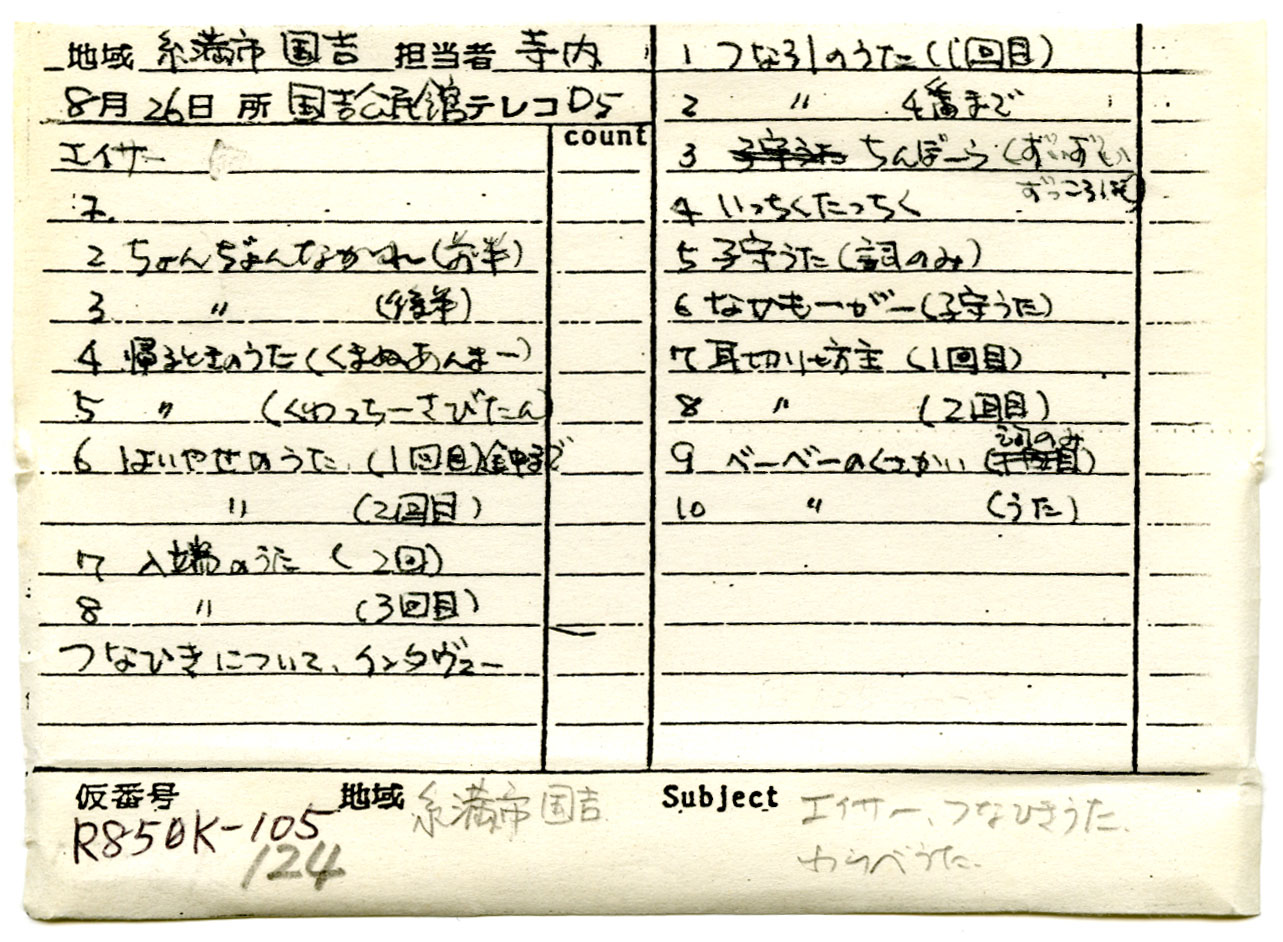 地域 糸満市 国吉 担当者 寺内
8月26日 所 国吉公民館 テレコ D5
count
エイサー
1.
2 ちょんぢょんながれ(前半)
3 〃 (後半)
4 帰るときのうた(くまぬあんまー)
5 〃 (くわっちーさびたん)
6 はいやせのうた (1回目)途中まで
〃 (2回目)
7 入端のうた (2回)
8 〃 (3回目)
つなひきについて、インタヴュー
1 つな引のうた(1回目)
2 〃 4番まで
3 子守うた ちんぼーら (ずいずい
ずっころばし)
4 いっちくたっちく
5 子守うた(詞のみ)
6 なせもーがー(子守うた)
7 耳切り坊主 (1回目)
8 〃 (2回目)
9 べーべーのくさかい (詞のみ)
10 〃 (うた)
仮番号 地域 糸満市 国吉 Subject エイサー、つなひきうた、
わらべうた.
R850K-105
124